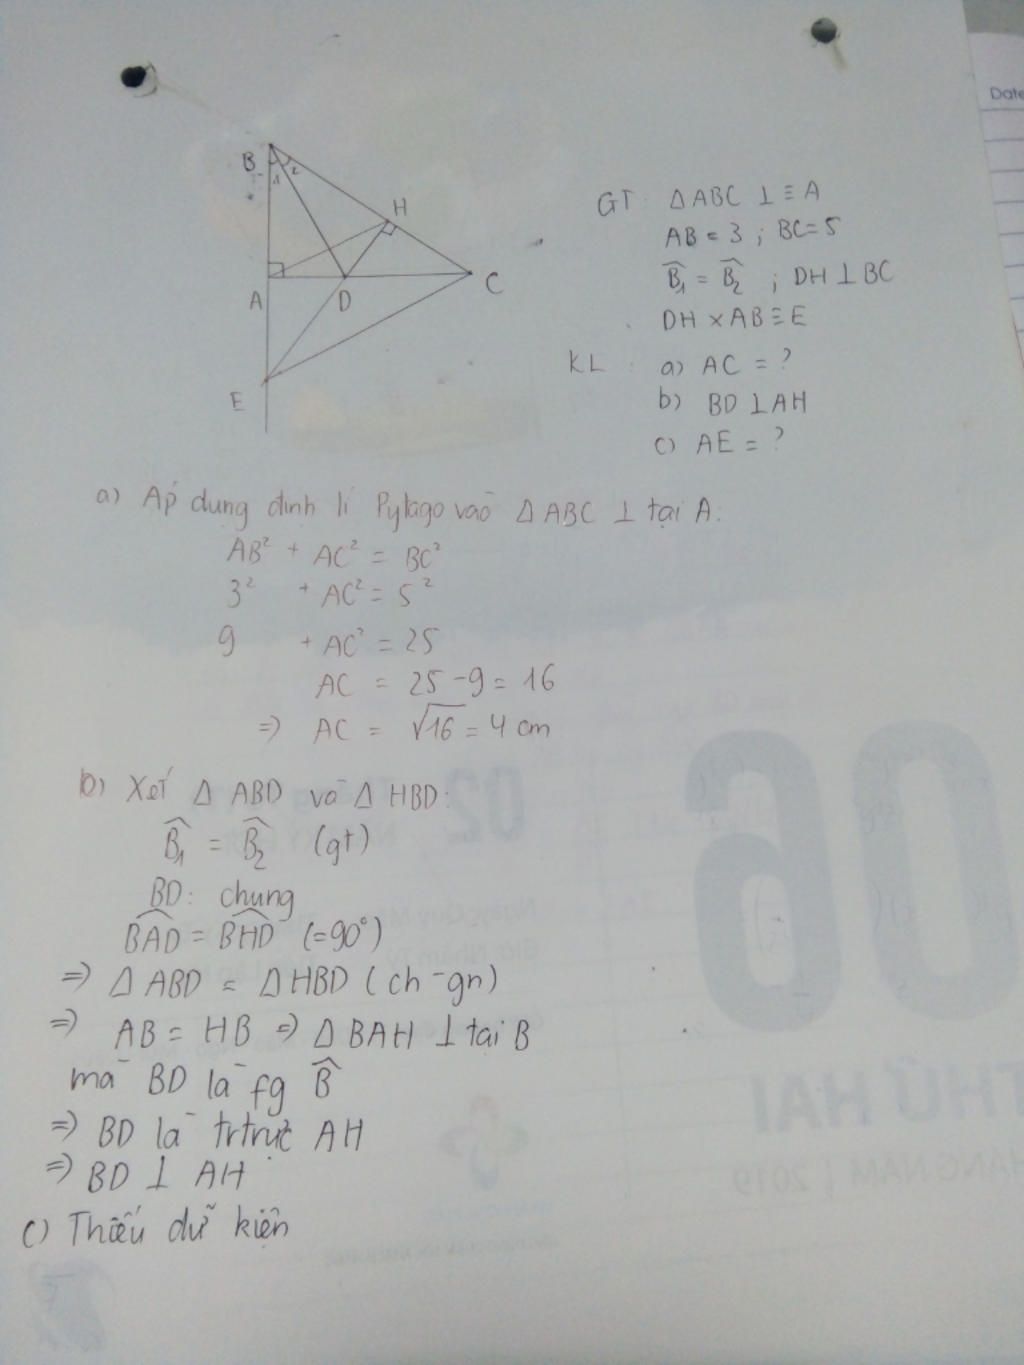 Date
B
1 2
H
A
D
C
E
GT: Δ ABC ⊥ ≡ A
AB = 3 ; BC = 5
B̂₁ = B̂₂ ; DH ⊥ BC
DH × AB ≡ E
KL : a) AC = ?
b) BD ⊥ AH
c) AE = ?
a) Áp dụng định lí Pytago vào Δ ABC ⊥ tại A:
AB² + AC² = BC²
3² + AC² = 5²
9 + AC² = 25
AC = 25 - 9 = 16
=> AC = √16 = 4 cm
b) Xét Δ ABD và Δ HBD:
B̂₁ = B̂₂ (gt)
BD: chung
BAD = BHD (= 90°)
=> Δ ABD = Δ HBD (ch - gn)
=> AB = HB => Δ BAH ⊥ tại B
mà BD là fg B̂
=> BD là trtrực AH
=> BD ⊥ AH
c) Thiếu dữ kiện
02
06
THỨ HAI
THÁNG NĂM | 2019